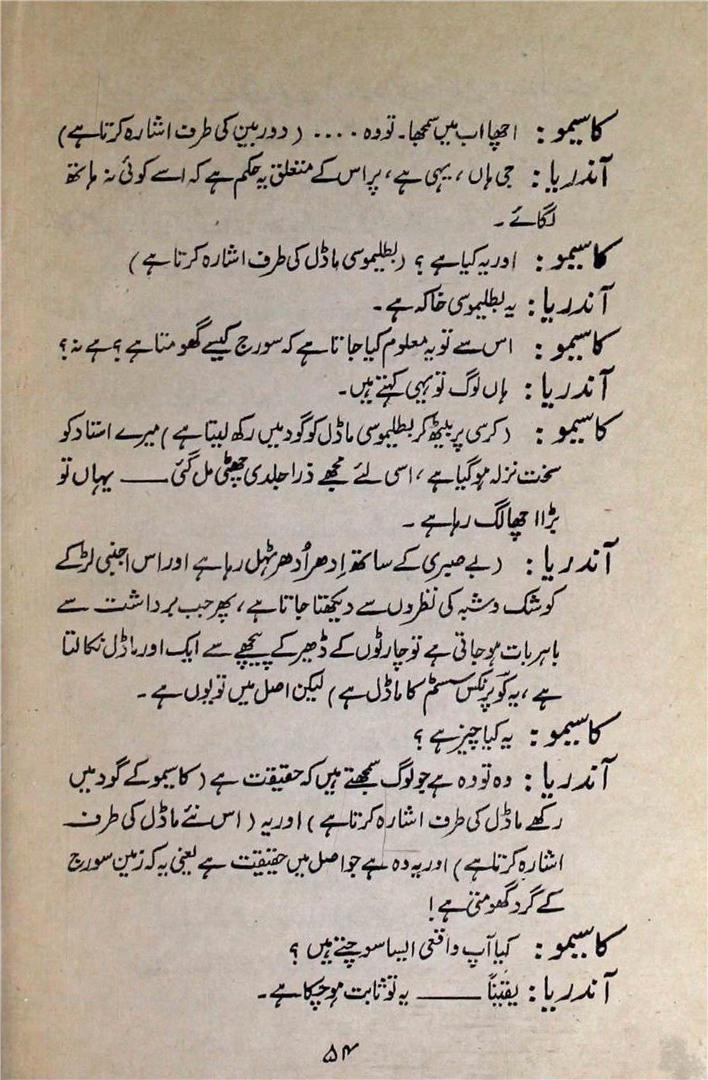 کاسیمو: اچھا اب میں سمجھا۔ تو وہ .... (دوربین کی طرف اشارہ کرتا ہے)
آندریا: جی ہاں، یہی ہے، پر اس کے متعلق یہ حکم ہے کہ اسے کوئی نہ ہاتھ
لگائے۔
کاسیمو: اور یہ کیا ہے؟ (بطلیموسی ماڈل کی طرف اشارہ کرتا ہے)
آندریا: یہ بطلیموسی خاکہ ہے۔
کاسیمو: اس سے تو یہ معلوم کیا جاتا ہے کہ سورج کیسے گھومتا ہے؟ ہے نہ؟
آندریا: ہاں لوگ تو یہی کہتے ہیں۔
کاسیمو: (کرسی پر بیٹھ کر بطلیموسی ماڈل کو گود میں رکھ لیتا ہے) میرے استاد کو
سخت نزلہ ہو گیا ہے، اسی لئے مجھے ذرا جلدی چھٹی مل گئی —— یہاں تو
بڑا اچھا لگ رہا ہے۔
آندریا: (بے صبری کے ساتھ اِدھر اُدھر ٹہل رہا ہے اور اس اجنبی لڑکے
کو شک و شبہ کی نظروں سے دیکھتا جاتا ہے، پھر جب برداشت سے
باہر بات ہو جاتی ہے تو چارٹوں کے ڈھیر کے پیچھے سے ایک اور ماڈل نکالتا
ہے، یہ کوپرنکس سسٹم کا ماڈل ہے) لیکن اصل میں تو یوں ہے۔
کاسیمو: یہ کیا چیز ہے؟
آندریا: وہ تو وہ ہے جو لوگ سمجھتے ہیں کہ حقیقت ہے (کاسیمو کے گود میں
رکھے ماڈل کی طرف اشارہ کرتا ہے) اور یہ (اس نئے ماڈل کی طرف
اشارہ کرتا ہے) اور یہ وہ ہے جو اصل میں حقیقت ہے یعنی یہ کہ زمین سورج
کے گرد گھومتی ہے!
کاسیمو: کیا آپ واقعی ایسا سوچتے ہیں؟
آندریا: یقیناً —— یہ تو ثابت ہو چکا ہے۔
۵۴